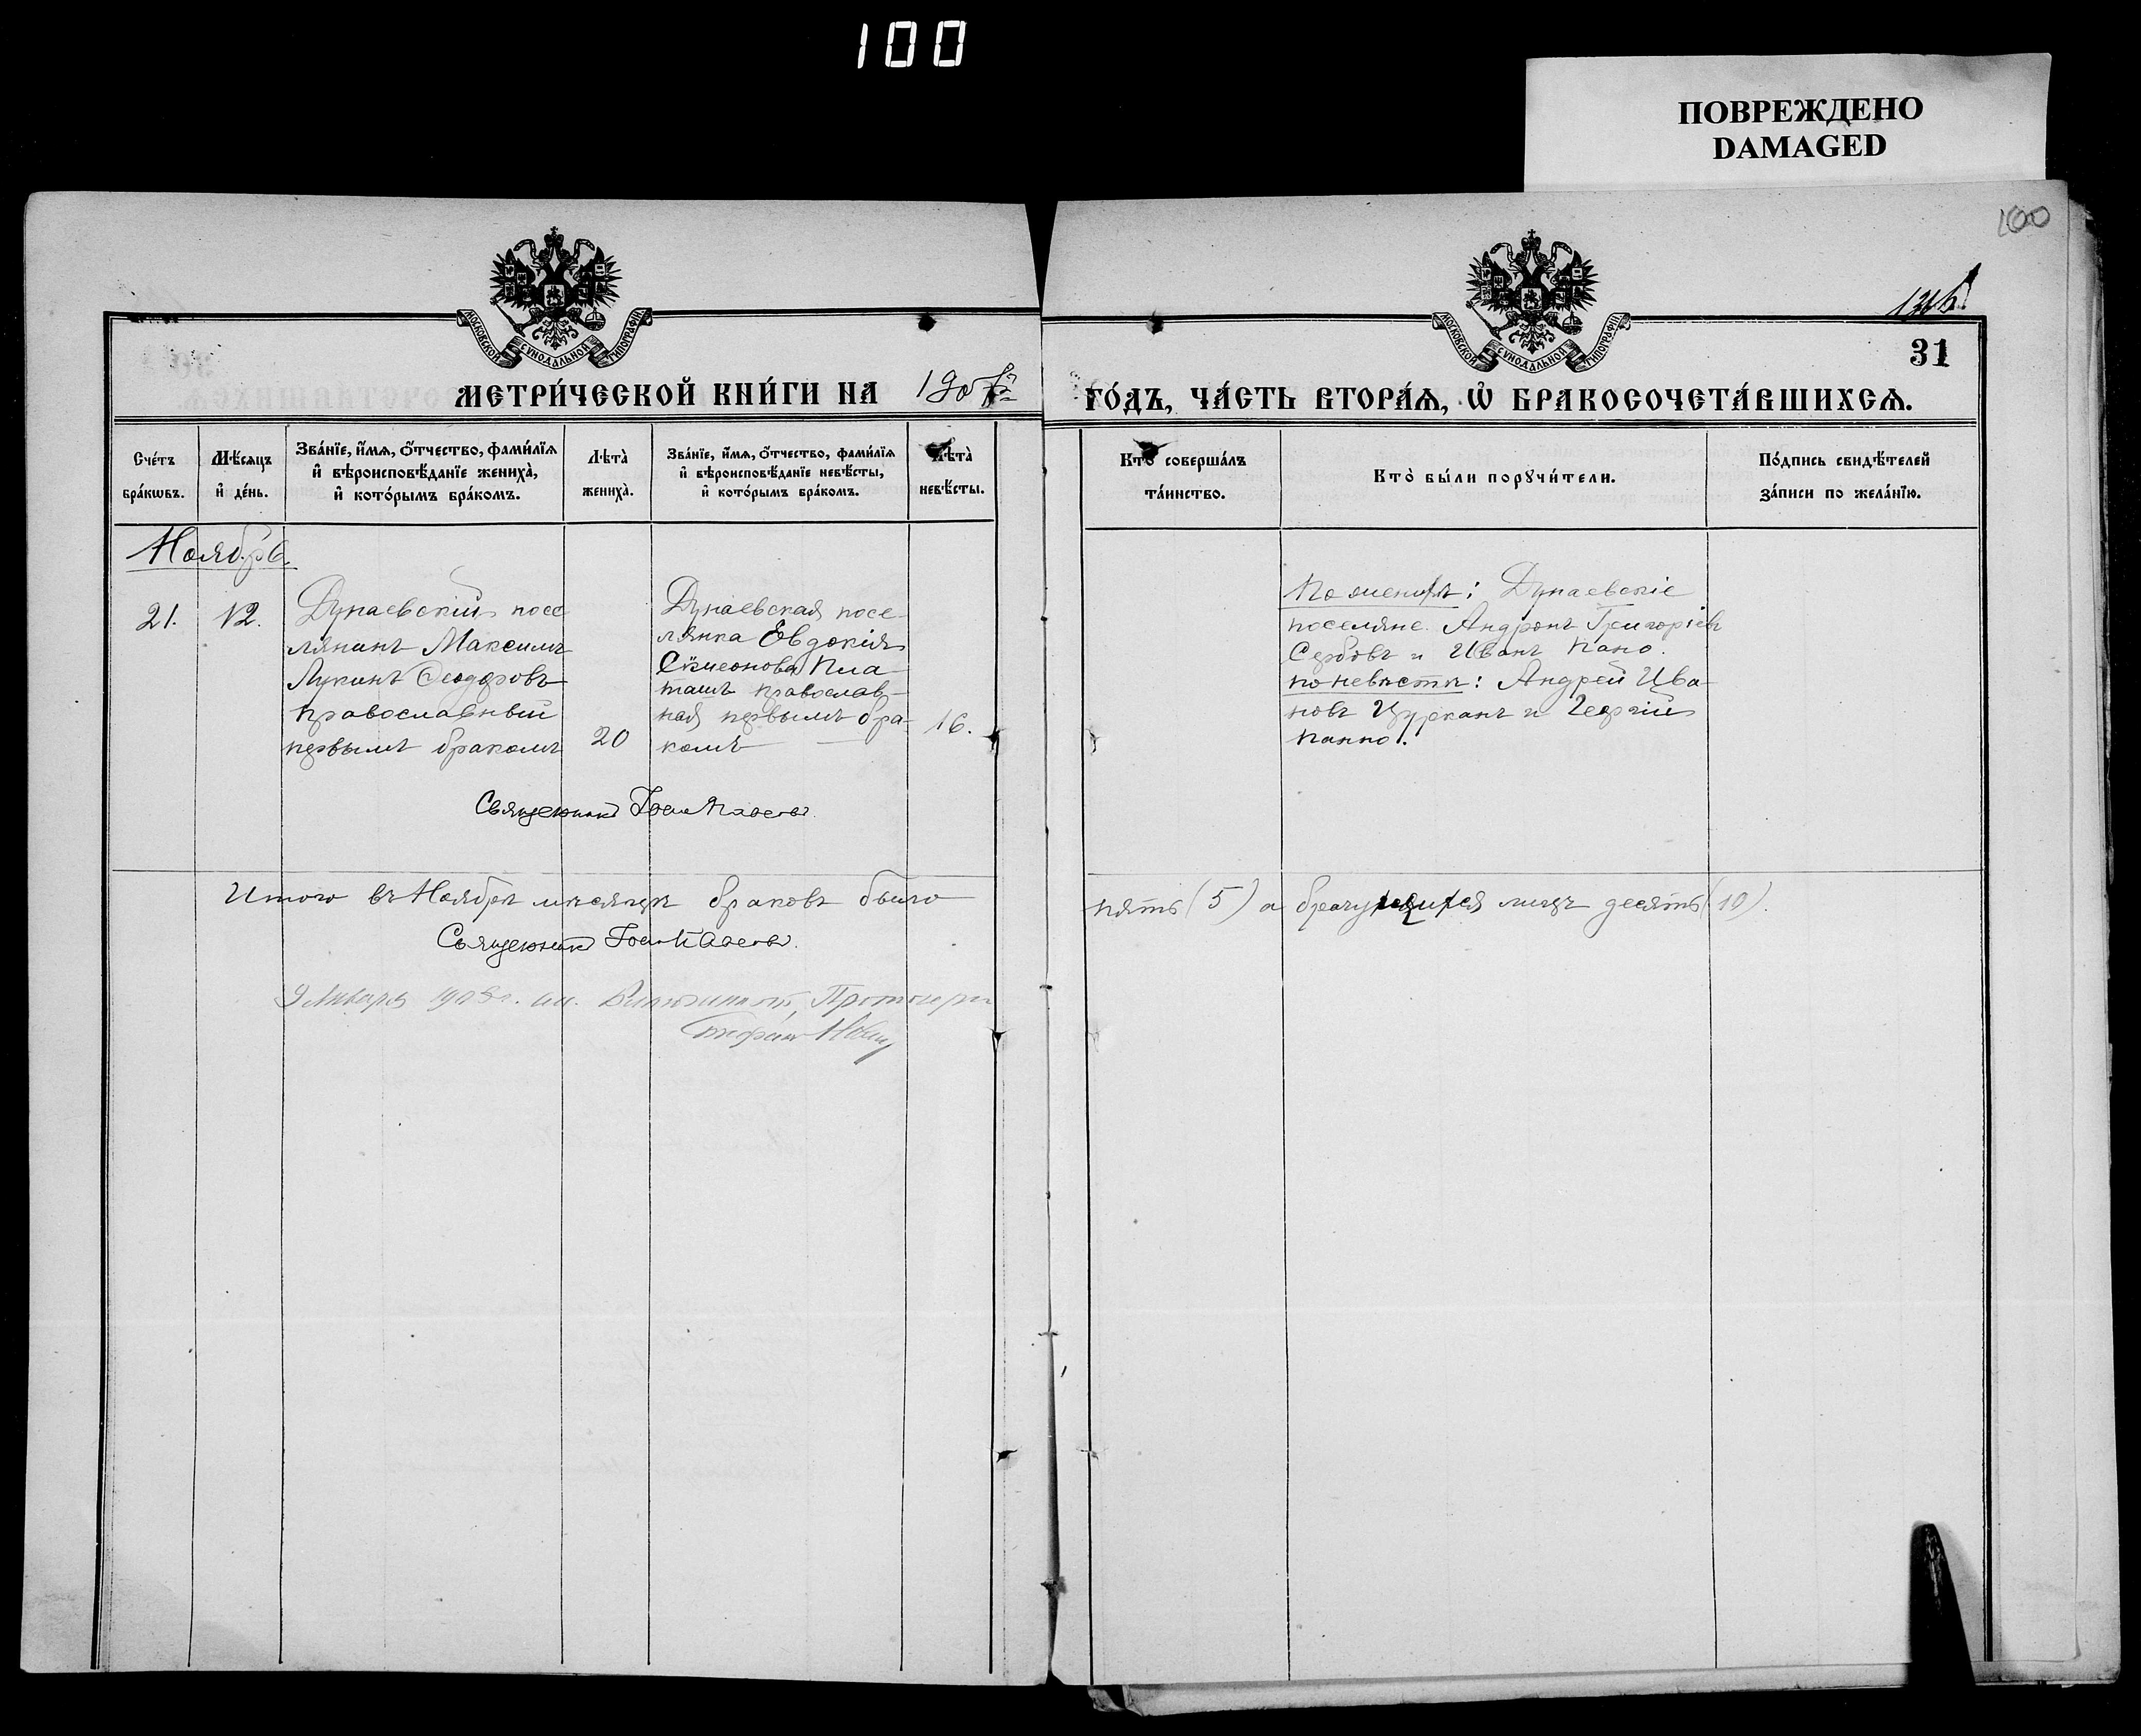 100
ПОВРЕЖДЕНО
DAMAGED
100
МОСКОВСКОЙ СУНОДАЛЬНОЙ ТИПОГРАФІИ
МОСКОВСКОЙ СУНОДАЛЬНОЙ ТИПОГРАФІИ
31
МЕТРИ́ЧЕСКОЙ КНИ́ГИ НА 1907
ГО́ДЪ, ЧА́СТЬ ВТОРА́Ѧ, Ѽ БРАКОСОЧЕТА́ВШИХСѦ.
Сче́тъ бра́кѡвъ.
Мѣ́сѧцъ и҆ де́нь.
Зва́нїе, и҆́мѧ, ѻ҆́тчество, фами́лїѧ и҆ вѣроисповѣ́данїе жениха̀, и҆ кото́рымъ бра́комъ.
Лѣта̀ жениха̀.
Зва́нїе, и҆́мѧ, ѻ҆́тчество, фами́лїѧ и҆ вѣроисповѣ́данїе невѣ́сты, и҆ кото́рымъ бра́комъ.
Лѣта̀ невѣ́сты.
Кто̀ соверша́лъ та́инство.
Кто̀ бы́ли порꙋчи́тели.
По́дпись свидѣ́телей за́писи по жела́нїю.
Ноябрь.
21.
12.
Дунаевскій посе
лянинъ Максимъ
Лукинъ Ѳеодоровъ
православный
первымъ бракомъ
20
Дунаевская посе-
лянка Евдокія
Сѵмеонова Пла-
ташъ православ-
ная первымъ бра-
комъ
16.
По женихѣ: Дунаевскіе
поселяне Андронъ Григоріевъ
Сербовъ и Иванъ Пано.
по невѣстѣ: Андрей Ива-
новъ Цурканъ и Георгій
Панно.
Священникъ
Итого въ Ноябрѣ мѣсяцѣ браковъ было
пять (5) а брачущихся лицъ десять (10).
Священникъ
9 Января 1908 г.